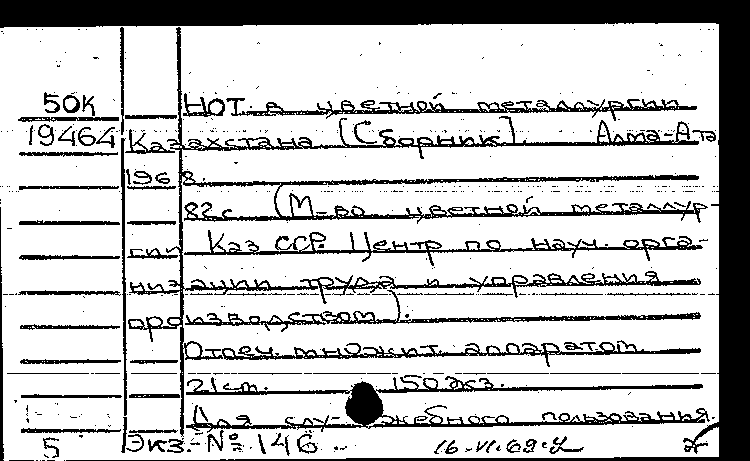 50К НОТ в цветной металлургии
19464 Казахстана [Сборник]. Алма-Ата
1968.
82 с (М-во цветной металлур-
гии Каз ССР. Центр по науч. орга-
низации труда и управления
производством).
Отпеч. множит. аппаратом.
21 см. 150 экз.
Для служебного пользования.
5 Экз. № 146 16.VI.69г